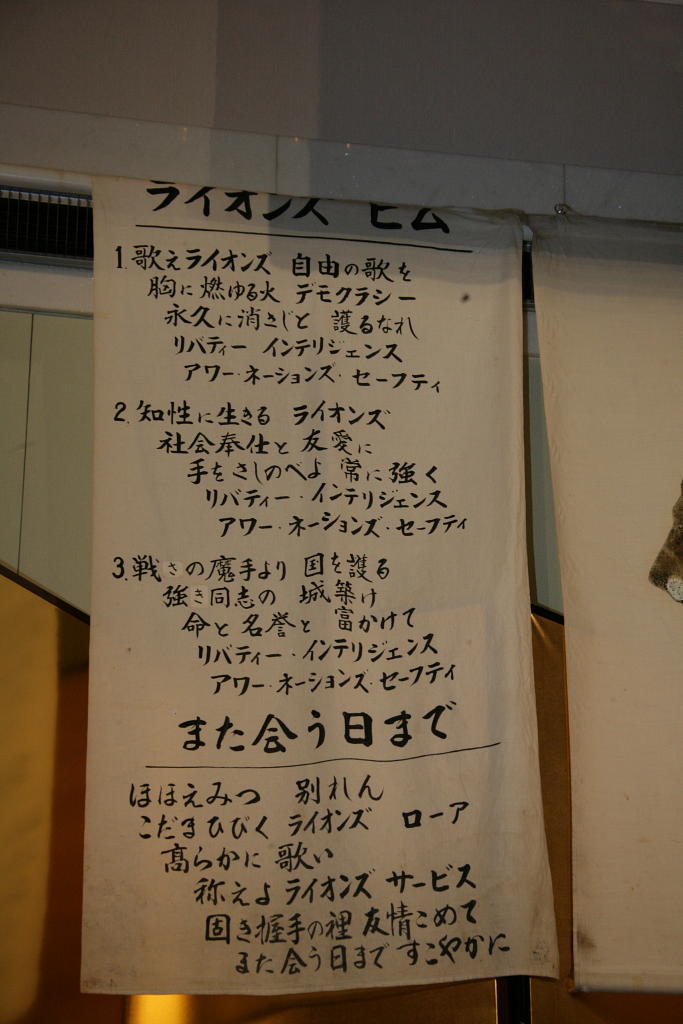 ライオンズ ヒム
1. 歌えライオンズ 自由の歌を
胸に燃ゆる火 デモクラシー
永久に消さじと 護るなれ
リバティー インテリジェンス
アワー・ネーションズ・セーフティ
2. 知性に生きる ライオンズ
社会奉仕と 友愛に
手をさしのべよ 常に強く
リバティー・インテリジェンス
アワー・ネーションズ・セーフティ
3. 戦さの魔手より 国を護る
強き同志の 城築け
命と名誉と 富かけて
リバティー・インテリジェンス
アワー・ネーションズ・セーフティ
また会う日まで
ほほえみつ 別れん
こだまひびく ライオンズ ローア
髙らかに 歌い
称えよ ライオンズ サービス
固き握手の裡 友情こめて
また会う日まで すこやかに